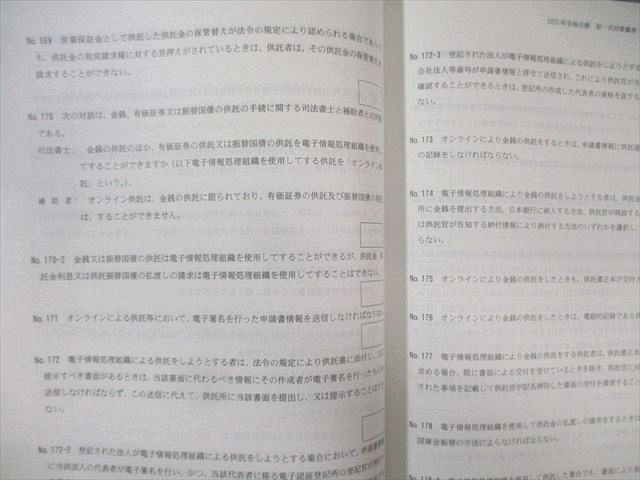 No. 169 営業保証金として供託した供託金の保管替えが法令の規定により認められる場合であって
も、供託金の取戻請求権に対する差押えがされているときは、供託者は、その供託金の保管替えを
請求することができない。
No. 170 次の対話は、金銭、有価証券又は振替国債の供託の手続に関する司法書士と補助者との対話
である。
司法書士： 金銭の供託のほか、有価証券の供託又は振替国債の供託を電子情報処理組織を使用し
てすることができますか（以下電子情報処理組織を使用してする供託を「オンライン供
託」という。）。
補 助 者： オンライン供託は、金銭の供託に限られており、有価証券の供託及び振替国債の供託
は、することができません。
No. 170-2 金銭又は振替国債の供託は電子情報処理組織を使用してすることができるが、供託金、供
託金利息又は供託振替国債の払渡しの請求は電子情報処理組織を使用してすることはできない。
No. 171 オンラインによる供託等において、電子署名を行った申請書情報を送信しなければならない。
No. 172 電子情報処理組織による供託をしようとする者は、法令の規定により供託書に添付し、又は
提示すべき書面があるときは、当該書面に代わるべき情報にその作成者が電子署名を行ったものを
送信しなければならず、この送信に代えて、供託所に当該書面を提出し、又は提示することはでき
ない。
No. 172-2 登記された法人が電子情報処理組織による供託をしようとする場合において、申請書情報
に当該法人の代表者が電子署名を行い、かつ、当該代表者に係る電子認証登記所の登記官が
2025年合格目標 択一式対策講座
No. 172-3 登記された法人が電子情報処理組織による供託をしようとする
会社法人等番号が申請書情報と併せて送信され、これにより供託官が当
確認することができるときは、登記所の作成した代表者の資格を証する
ない。
No. 173 オンラインにより金銭の供託をするときは、申請書情報に供託通
の記録をしなければならない。
No. 174 電子情報処理組織により金銭の供託をしようとする者は、供託金
所に金銭を提出する方法、日本銀行に納入する方法、供託官が開設する
は供託官が告知する納付情報により納付する方法のいずれかを選択し、
らない。
No. 175 オンラインにより金銭の供託をしたときも、供託書正本が交付さ
No. 176 オンラインにより金銭の供託をしたときは、電磁的記録である供
No. 177 電子情報処理組織により金銭の供託をする供託者は、供託書正本
求める場合、既に書面による交付を受けているときを除き、供託官に対
された事項を記載して供託官が記名押印した書面の交付を請求すること
No. 178 電子情報処理組織を使用して供託金の払渡しの請求をするときは
国庫金振替の方法によらなければならない。